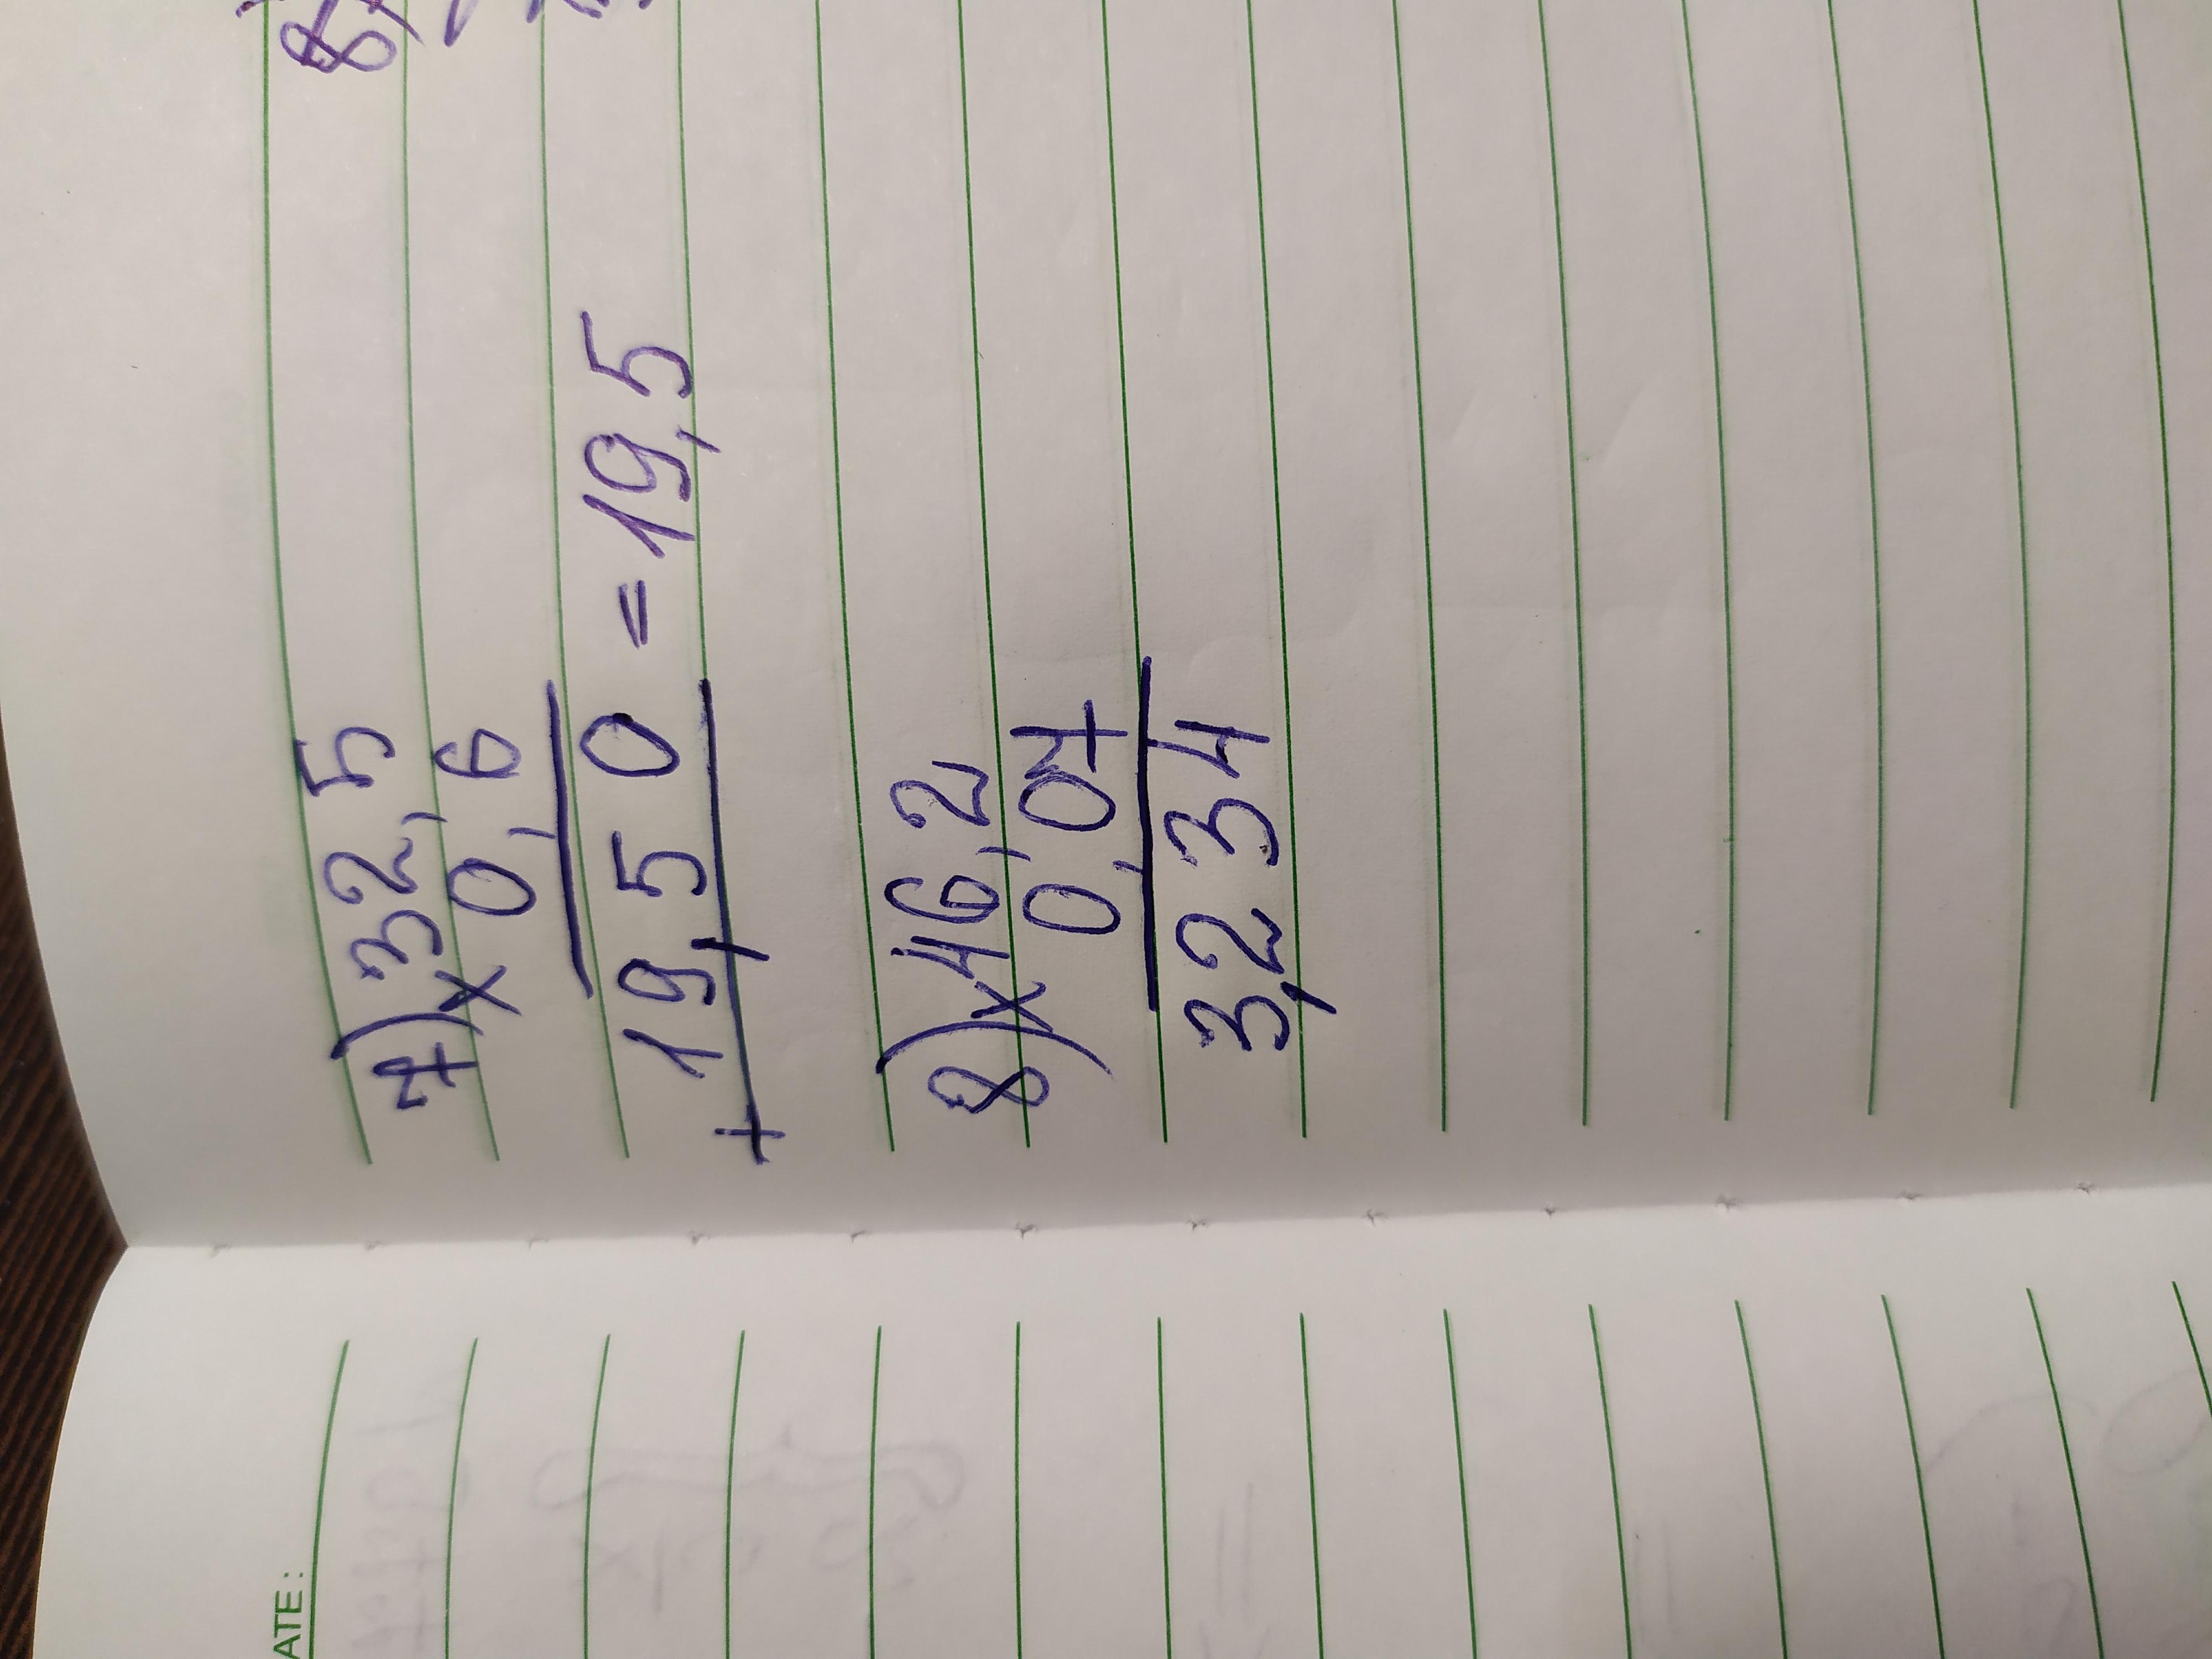 7) 32,5
x 0,6
19,50 = 19,5
+
8) x 46,2
0,07
3,234
ATE: